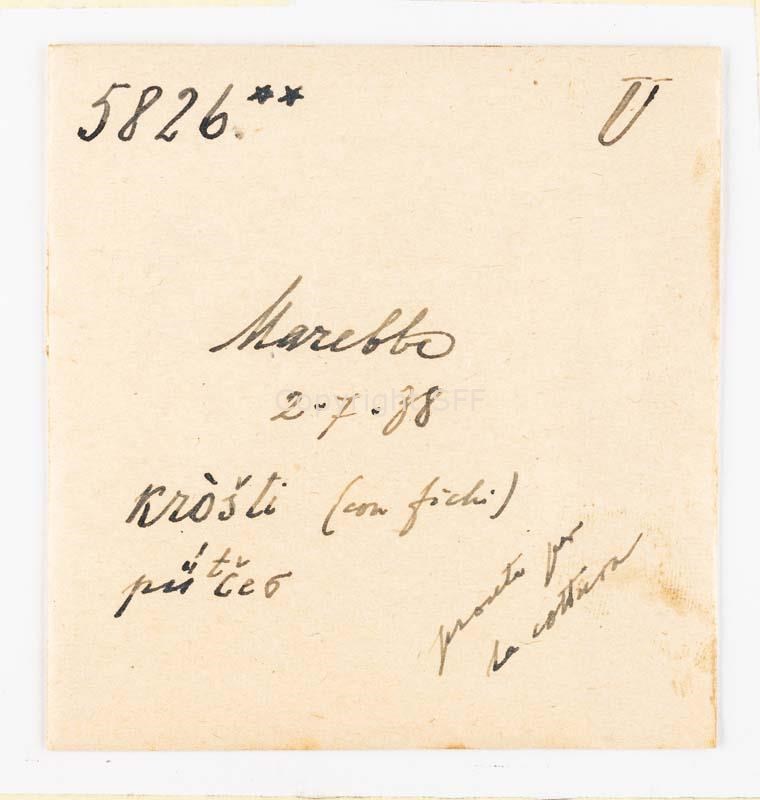 5826.** U
Marebbe
Copyright SFF
2.7.38
kròšti (con fichi)
pronte per
la cottura